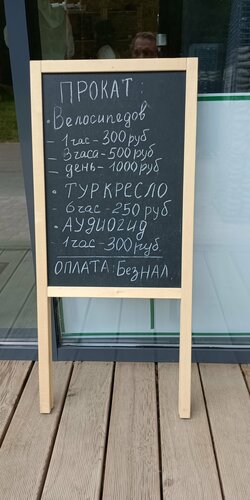 ПРОКАТ:
• Велосипедов
– 1 час – 300 руб
– 3 часа – 500 руб.
– день – 1000 руб
• ТУРКРЕСЛО
– 6 час – 250 руб.
• АУДИОГИД
– 1 час – 300 руб.
ОПЛАТА: БезНАЛ.